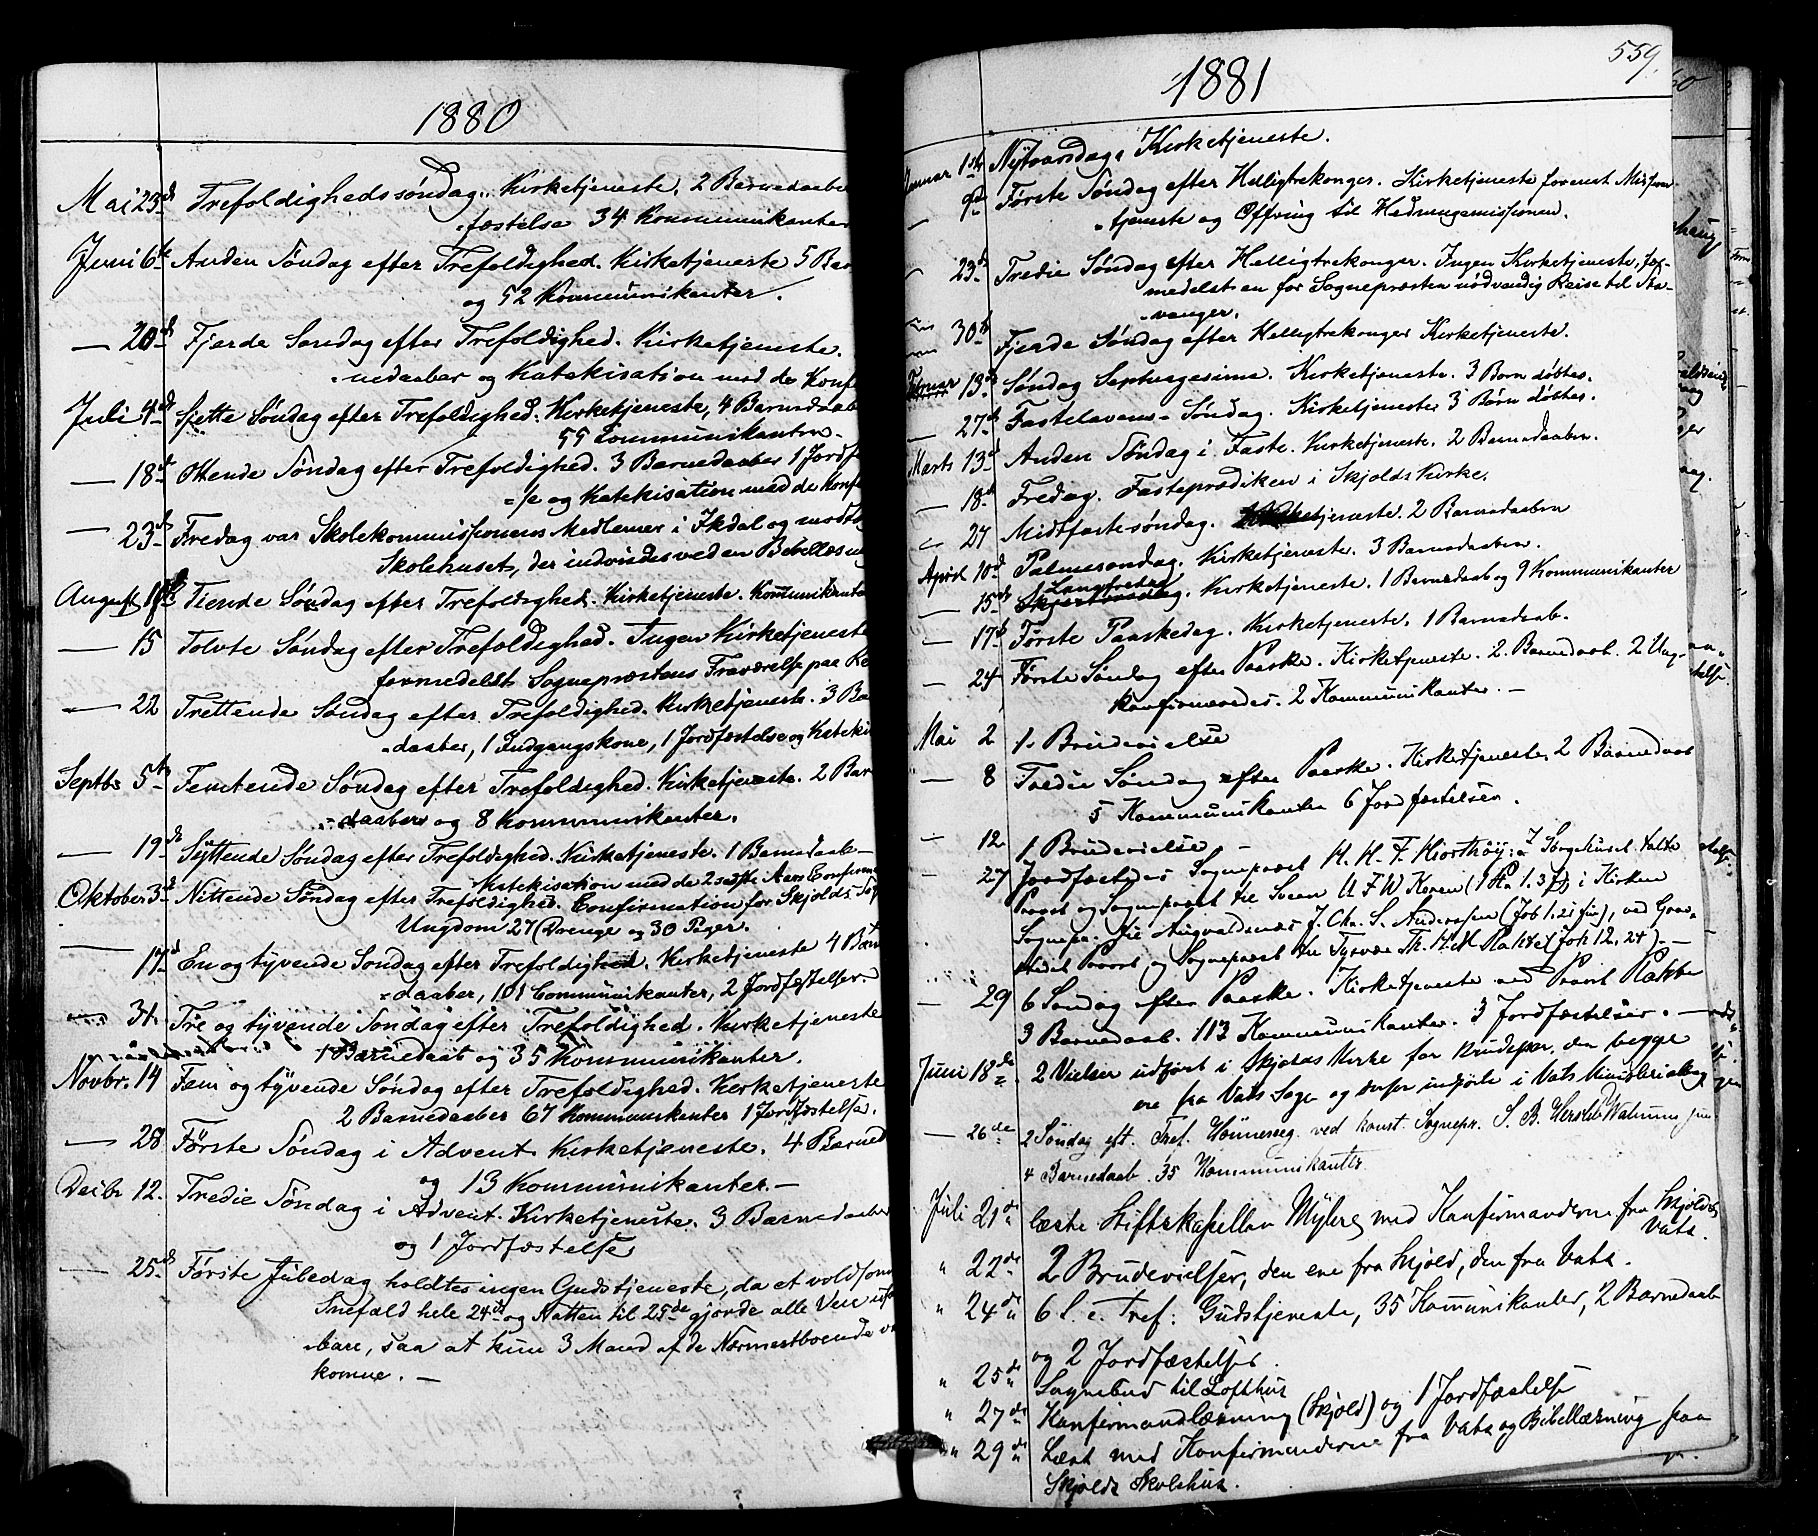 1880
Mai 23d Trefoldighedssøndag. Kirketjeneste. 2 Barnedaabe
-fæstelse 34 Kommunikanter
Juni 6te Anden Søndag efter Trefoldighed. Kirketjeneste 5 Bar
og 52 Kommunikanter.
— 20d Fjerde Søndag efter Trefoldighed. Kirketjeneste.
-nedaaber og Katekisation med de Konf
Juli 4de Sjette Søndag efter Trefoldighed. Kirketjeneste, 4 Barnedaab
55 Communikanter.
— 18d Ottende Søndag efter Trefoldighed. 3 Barnedaaber 1 Jordf
-se og Katekisation med de Konf
— 23d Fredag var Skolekommissionens Medlemer i Ikdal og modt
Skolehuset, der indviedes ved en Bibellæsn
August Tiende Søndag efter Trefoldighed. Kirketjeneste. Kommunikante
— 15 Tolvte Søndag efter Trefoldighed. Ingen Kirketjeneste
formedelst Sognepræstens Fraværelse paa Re
— 22 Trettende Søndag efter Trefoldighed. Kirketjeneste. 3 Ba
-daaber, 1 Indgangskone, 1 Jordfæstelse og Kateki
Septbr 5te Femtende Søndag efter Trefoldighed. Kirketjeneste. 2 Bar
-daaber og 8 Kommunikanter.
— 19de Syttende Søndag efter Trefoldighed. Kirketjeneste. 1 Barnedaab—
Katekisation med de 2 sidste Aars Confirm
Oktober 3d Nittende Søndag efter Trefoldighed. Confirmation for Skjolds Sog
Ungdom 27 Drenge og 30 Piger.
— 17d En og tyvende Søndag efter Trefoldighed. Kirketjeneste 4 Barn
-daaber, 101 Communikanter, 2 Jordfæstelser.
— 31. Tre og tyvende Søndag efter Trefoldighed. Kirketjeneste
1 Barnedaab og 35 Kommunikanter.
Novbr. 14 Fem og tyvende Søndag efter Trefoldighed. Kirketjeneste
2 Barnedaaber 67 Kommunikanter 1 Jordfæstelse.
— 28 Første Søndag i Advent Kirketjeneste. 4 Barned
og 13 Kommunikanter.—
Decbr 12. Tredie Søndag i Advent. Kirketjeneste. 3 Barnedaaber
og 1 Jordfæstelse
— 25d Første Juledag holdtes ingen Gudstjeneste, da et voldsom
Snefald hele 24de og Natten til 25de gjorde alle Veie ufø
-bare, saa at kun 3 Mand af de Nærmestboende va
komne. —
1881
559.
Januar 1ste Nytaarsdag. Kirketjeneste.
— 9de Første Søndag efter Helligtrekonger. Kirketjeneste forenet Mission-
-tjeneste og Offring til Hedningemissionen.
— 23d Tredie Søndag efter Helligtrekonger. Ingen Kirketjeneste, for-
medelst en for Sognepræsten nødvendig Reise til Sta-
-vanger.
30te Fjerde Søndag efter Helligtrekonger Kirketjeneste.
Februar 13de Søndag Septuagesima. Kirketjeneste. 3 Børn døbtes.
— 27de Fastelavens-Søndag. Kirketjeneste 3 Børn døbtes.
Marts 13d Anden Søndag i Faste. Kirketjeneste. 2 Barnedaaber.
— 18d Fredag. Fasteprædiken i Skjolds Kirke.
— 27 Midtfastesøndag. Kirketjeneste. 2 Barnedaaber
April 10d Palmesøndag. Kirketjeneste. 3 Barnedaaber.
— 15de Langfredag. Kirketjeneste. 1 Barnedaab og 9 Kommunikanter
— 17de Første Paaskedag. Kirketjeneste. 1 Barnedaab.
— 24 Første Søndag efter Paaske. Kirketjeneste. 2 Barnedaab. 2 Ung-
konfirmeredes. 2 Kommunikanter. —
Mai 2 1 Brudevielse
— 8 Tredie Søndag efter Paaske. Kirketjeneste, 2 Barnedaab
5 Kommunikanter 6 Jordfæstelser.
— 12 1 Brudevielse —
— 27 Jordfæstedes Sognepræst H. H. F. Hiorthöy: I Sørgehuset talte
Provst og Sognepræst til Sveen U F W Koren (1 Pa 1. 3 f) i Kirken
Sognepr. til Augvaldsnæs J. Chr. S. Anderssen (Job 1. 21 fin), ved Grav-
stedet Provst og Sognepræst til Tysvær Th. H. H Rakke (Joh 12. 24). —
— 29 6 Søndag efter Paaske. Kirketjeneste ved Provst Rakke
3 Barnedaab. 113 Kommunikanter. 3 Jordfæstelser. —
Juni 18de 2 Vielser udført i Skjolds Kirke for Brudepar, der begge
ere fra Vats Sogn og derfor indførte i Vats Ministerialbog
— 26de 2 Søndag eft. Tref. Høimesseg. ved konst. Sognepr. S. B.
4 Barnedaab. 35 Kommunikanter.
Juli 21de læste Stiftskapellan Myhre med Konfirmanderne fra Skjold og
Vats.
" 22de 2 Brudevielser, den ene fra Skjold, den fra Vats.
" 24de 6 S. e. Tref: Gudstjeneste, 35 Komunikanter, 2 Barnedaab
og 2 Jordfæstelser.
" 25de Sognebud til Lofthus
" 27de Konfirmandlæsning (Skjold) og 1 Jordfæstelse
" 29de Læst med Konfirmanderne fra Vats og Bibellæsning paa
Skjolds Skolehus.